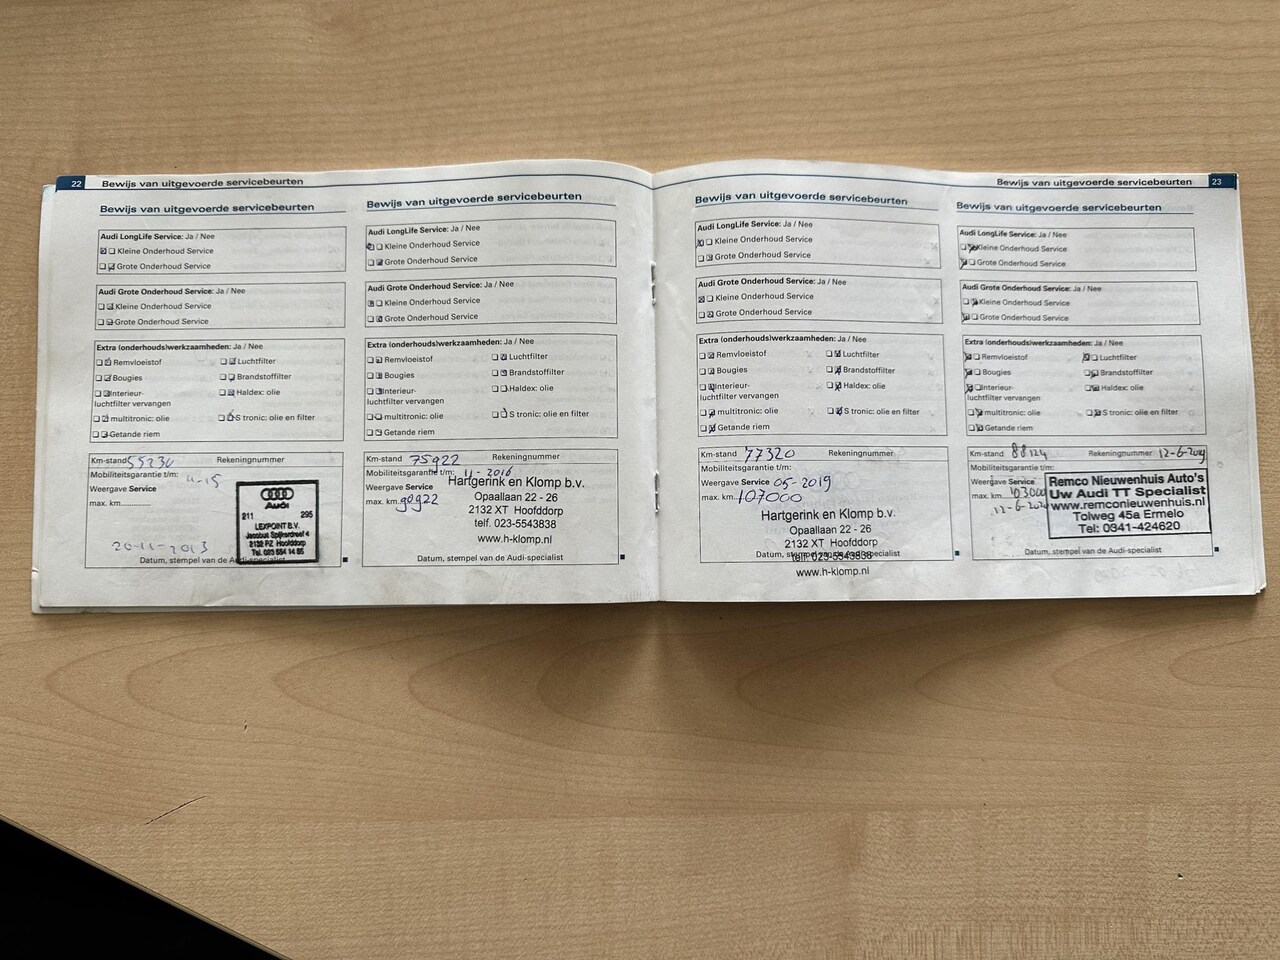 22
Bewijs van uitgevoerde servicebeurten
Bewijs van uitgevoerde servicebeurten
Audi LongLife Service: Ja / Nee
Kleine Onderhoud Service
Grote Onderhoud Service
Audi Grote Onderhoud Service: Ja / Nee
Kleine Onderhoud Service
Grote Onderhoud Service
Extra (onderhouds)werkzaamheden: Ja / Nee
Remvloeistof
Luchtfilter
Bougies
Brandstoffilter
Interieur-
luchtfilter vervangen
Haldex: olie
multitronic: olie
S tronic: olie en filter
Getande riem
Km-stand 55230
Rekeningnummer
Mobiliteitsgarantie t/m:
11-15
Weergave Service
max. km
20-11-2013
Audi
211 295
LEXPOINT B.V.
Jacobus Spijkerdreef 4
2132 PZ Hoofddorp
Tel. 023 554 14 85
Datum, stempel van de Audi-specialist
Bewijs van uitgevoerde servicebeurten
Audi LongLife Service: Ja / Nee
Kleine Onderhoud Service
Grote Onderhoud Service
Audi Grote Onderhoud Service: Ja / Nee
Kleine Onderhoud Service
Grote Onderhoud Service
Extra (onderhouds)werkzaamheden: Ja / Nee
Remvloeistof
Luchtfilter
Bougies
Brandstoffilter
Interieur-
luchtfilter vervangen
Haldex: olie
multitronic: olie
S tronic: olie en filter
Getande riem
Km-stand 75922
Rekeningnummer
Mobiliteitsgarantie t/m: 11-2016
Weergave Service
max. km 90922
Hartgerink en Klomp b.v.
Opaallaan 22 - 26
2132 XT Hoofddorp
telf. 023-5543838
www.h-klomp.nl
Datum, stempel van de Audi-specialist
Bewijs van uitgevoerde servicebeurten
23
Bewijs van uitgevoerde servicebeurten
Audi LongLife Service: Ja / Nee
Kleine Onderhoud Service
Grote Onderhoud Service
Audi Grote Onderhoud Service: Ja / Nee
Kleine Onderhoud Service
Grote Onderhoud Service
Extra (onderhouds)werkzaamheden: Ja / Nee
Remvloeistof
Luchtfilter
Bougies
Brandstoffilter
Interieur-
luchtfilter vervangen
Haldex: olie
multitronic: olie
S tronic: olie en filter
Getande riem
Km-stand 77320
Rekeningnummer
Mobiliteitsgarantie t/m:
Weergave Service 05-2019
max. km 107000
Hartgerink en Klomp b.v.
Opaallaan 22 - 26
2132 XT Hoofddorp
telf. 023-5543838
Datum, stempel van de Audi-specialist
www.h-klomp.nl
Bewijs van uitgevoerde servicebeurten
Audi LongLife Service: Ja / Nee
Kleine Onderhoud Service
Grote Onderhoud Service
Audi Grote Onderhoud Service: Ja / Nee
Kleine Onderhoud Service
Grote Onderhoud Service
Extra (onderhouds)werkzaamheden: Ja / Nee
Remvloeistof
Luchtfilter
Bougies
Brandstoffilter
Interieur-
luchtfilter vervangen
Haldex: olie
multitronic: olie
S tronic: olie en filter
Getande riem
Km-stand 88124
Rekeningnummer
Mobiliteitsgarantie t/m:
Weergave Service
max. km 103000
Remco Nieuwenhuis Auto's
Uw Audi TT Specialist
www.remconieuwenhuis.nl
Tolweg 45a Ermelo
Tel: 0341-424620
Datum, stempel van de Audi-specialist